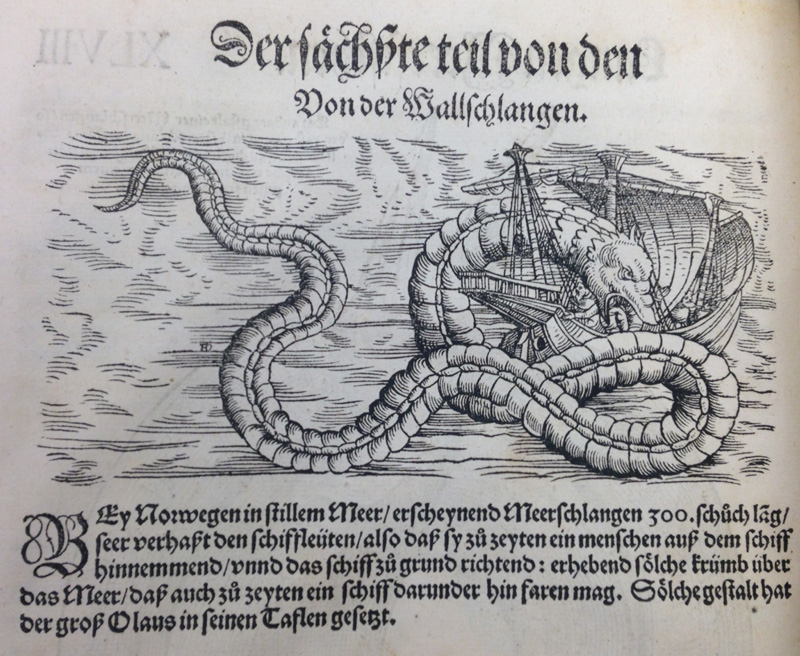 Der sächßte teil von den
Von der Wallschlangen.
BEy Norwegen in stillem Meer/ erscheynend Meerschlangen 300. schůch lãg/
seer verhaßt den schiffleüten/ also daß sy zů zeyten ein menschen auß dem schiff
hinnemmend/ vnnd das schiff zů grund richtend: erhebend sölche krümb über
das Meer/ daß auch zů zeyten ein schiff darunder hin faren mag. Sölche gestalt hat
der groß Olaus in seinen Taflen gesetzt.